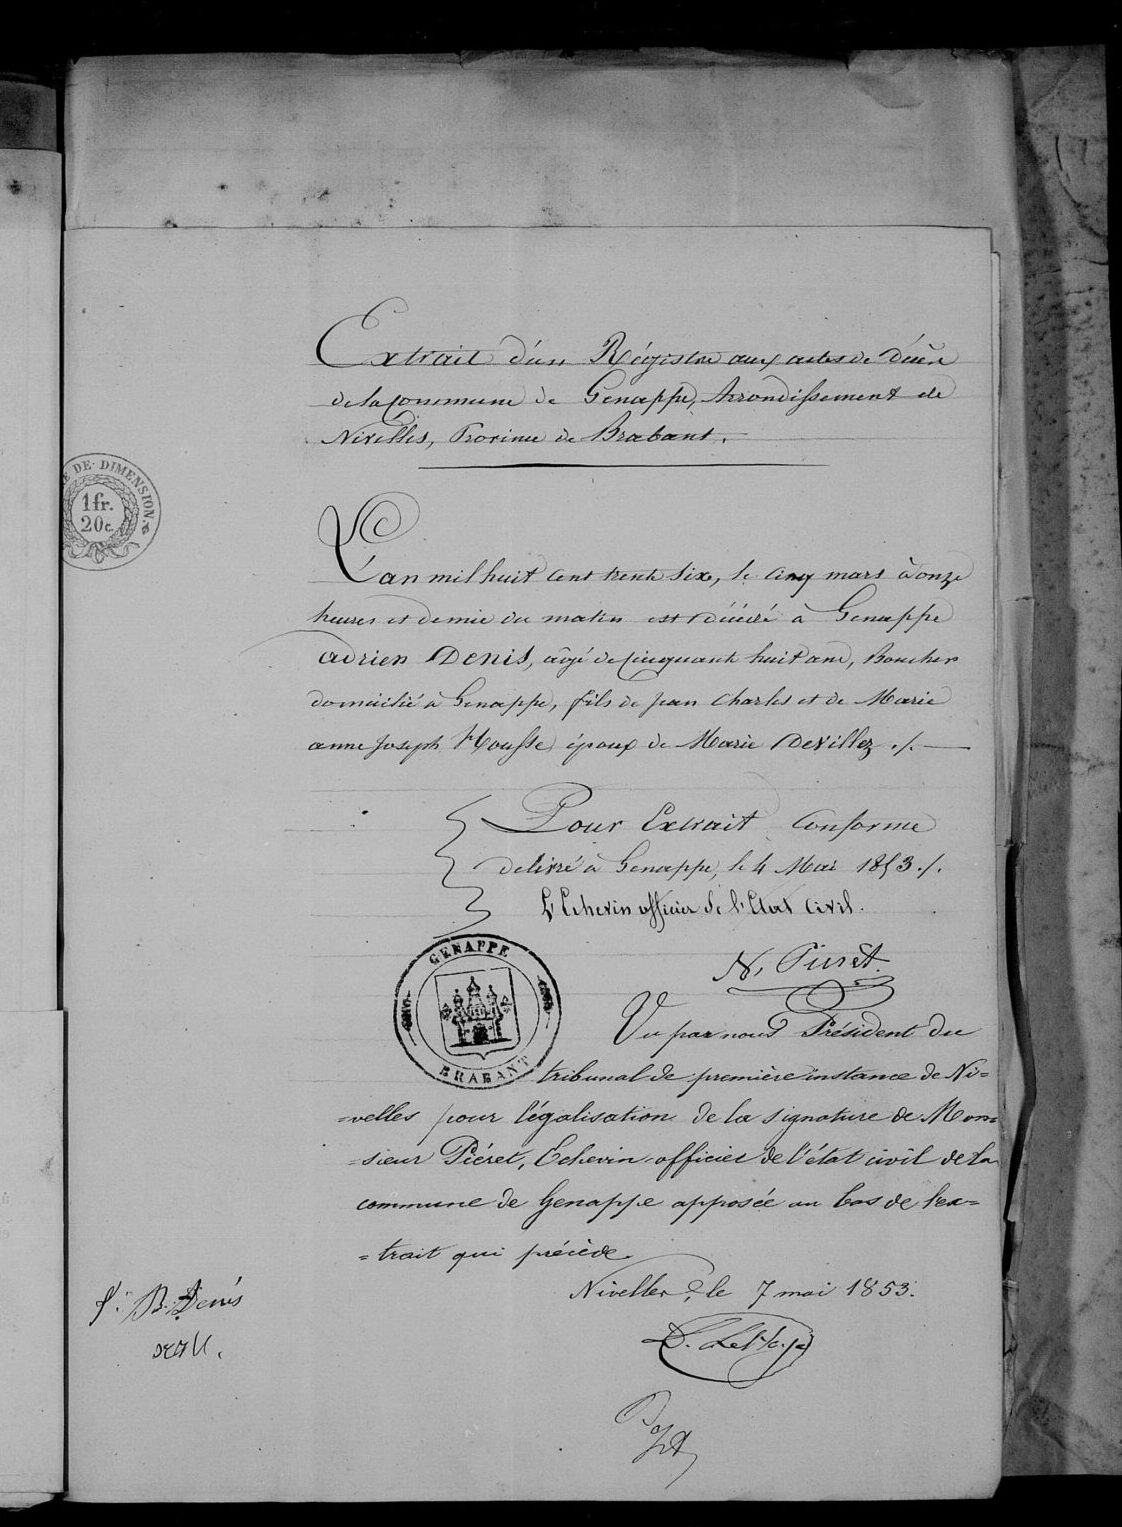 Extrait d'un Régistre aux actes de Décès
de la Commune de Genappe, Arrondissement de
Nivelles, Province de Brabant.
E DE DIMENSION.
1 fr.
20 c.
L'an mil huit cent trente six, le cinq mars à onze
heures et demie du matin est décédé à Genappe
Adrien Denis, âgé de Cinquante huit ans, Boucher
domicilié à Genappe, fils de Jean Charles et de Marie
anne Joseph Housse époux de Marie Devillez ./.
Pour Extrait Conforme
delivré à Genappe, le 4 Mai 1853./.
L'Echevin officier de l'Etat Civil.
N. Piérèt
GENAPPE
BRABANT
Vu par nous Président du
tribunal de première instance de Ni=
=velles pour légalisation de la signature de Mon=
=sieur Piéret, Echevin officier de l'état civil de la
commune de Genappe apposée au bas de l'ex=
=trait qui précède.
Nivelles, le 7 mai 1853.
B. Denis